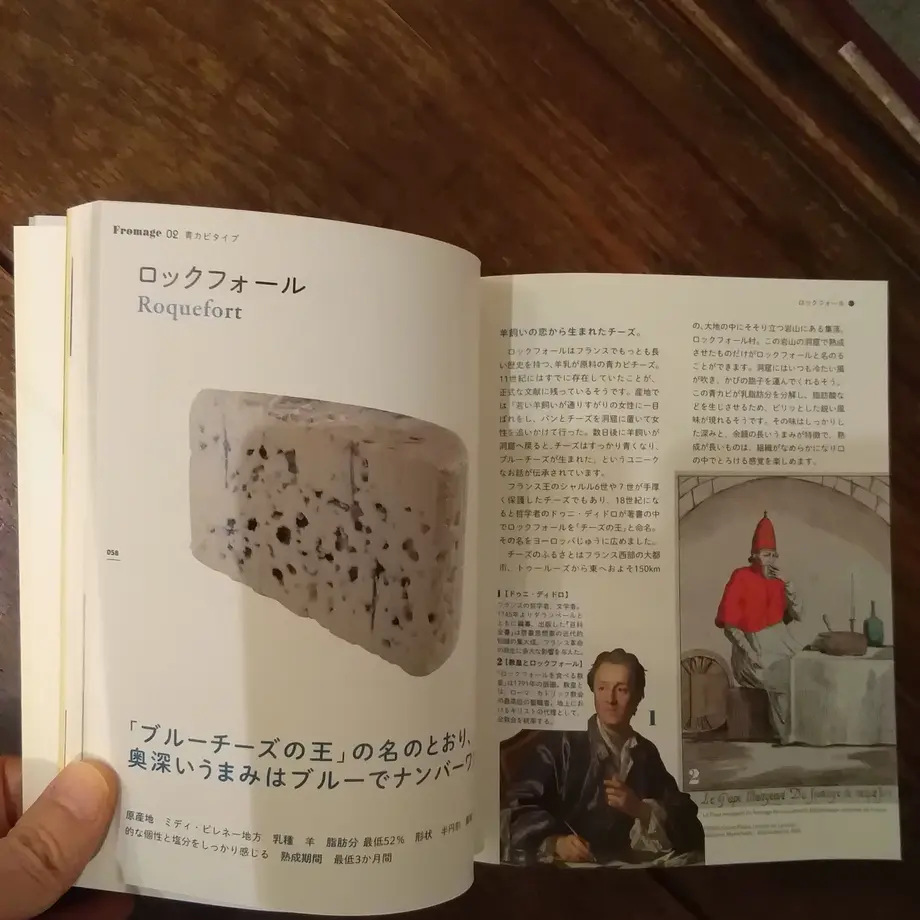 Fromage 02 青カビタイプ
ロックフォール
Roquefort
058
「ブルーチーズの王」の名のとおり、
奥深いうまみはブルーでナンバーワ
原産地 ミディ・ピレネー地方 乳種 羊 脂肪分 最低52% 形状 半円形
的な個性と塩分をしっかり感じる 熟成期間 最低3か月間
ロックフォール
羊飼いの恋から生まれたチーズ。
ロックフォールはフランスでもっとも長
い歴史を持つ、羊乳が原料の青カビチーズ。
11世紀にはすでに存在していたことが、
正式な文献に残っているそうです。産地で
は「若い羊飼いが通りすがりの女性に一目
ぼれをし、パンとチーズを洞窟に置いて女
性を追いかけて行った。数日後に羊飼いが
洞窟へ戻ると、チーズはすっかり青くなり、
ブルーチーズが生まれた」というユニーク
なお話が伝承されています。
フランス王のシャルル6世や7世が手厚
く保護したチーズでもあり、18世紀にな
ると哲学者のドゥニ・ディドロが著書の中
でロックフォールを「チーズの王」と命名。
その名をヨーロッパじゅうに広めました。
チーズのふるさとはフランス西部の大都
市、トゥールーズから東へおよそ150km
の、大地の中にそそり立つ岩山にある集落、
ロックフォール村。この岩山の洞窟で熟成
させたものだけがロックフォールと名のる
ことができます。洞窟にはいつも冷たい風
が吹き、かびの胞子を運んでくれるそう。
この青カビが乳脂肪分を分解し、脂肪酸な
どを生じさせるため、ピリッとした鋭い風
味が現れるそうです。その味はしっかりし
た深みと、余韻の長いうまみが特徴で、熟
成が長いものは、組織がなめらかになり口
の中でとろける感覚を楽しめます。
1【ドゥニ・ディドロ】
フランスの哲学者、文学者。
2【教皇とロックフォール】
「ロックフォールを食べる教
皇」は1791年の版画。教皇と
は、ローマ・カトリック教会
の最高位の聖職者。地上にお
けるキリストの代理として、
全教会を統率する。
1
2